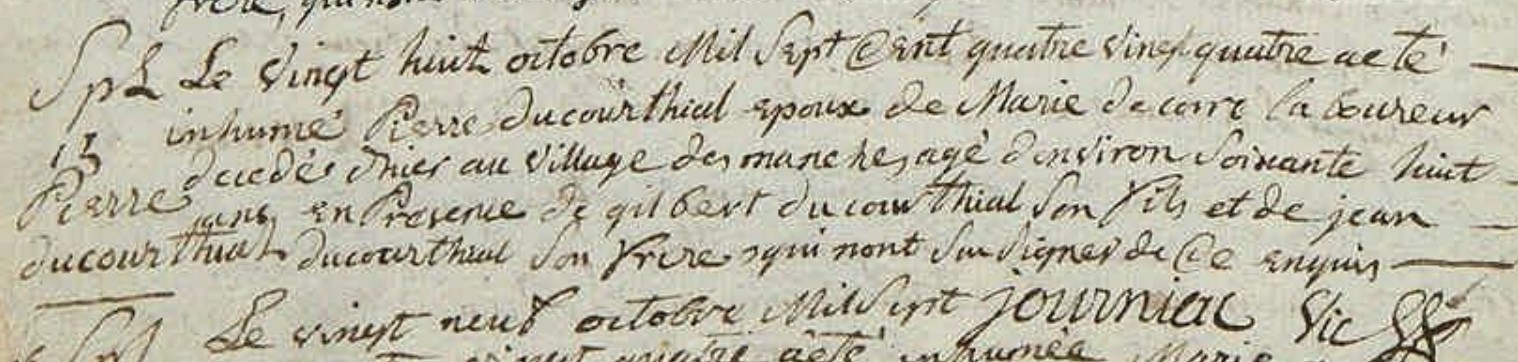 frere, qui
Spl Le vingt huit octobre Mil Sept Cent quatre vingt quatre aeté
inhumé Pierre ducourthial epoux de Marie decorre laboureur
13 decedés d'hier au village des manches, agé d'environ Soixante huit
Pierre ans en Presence de gilbert ducourthial Son fils et de jean
ducourthial ducourthial Son frere qui nont Su Signer de Ce enquis
journiac Vic
Le vingt neuf octobre Mil Sept
vingt quatre aeté inhumée Marie